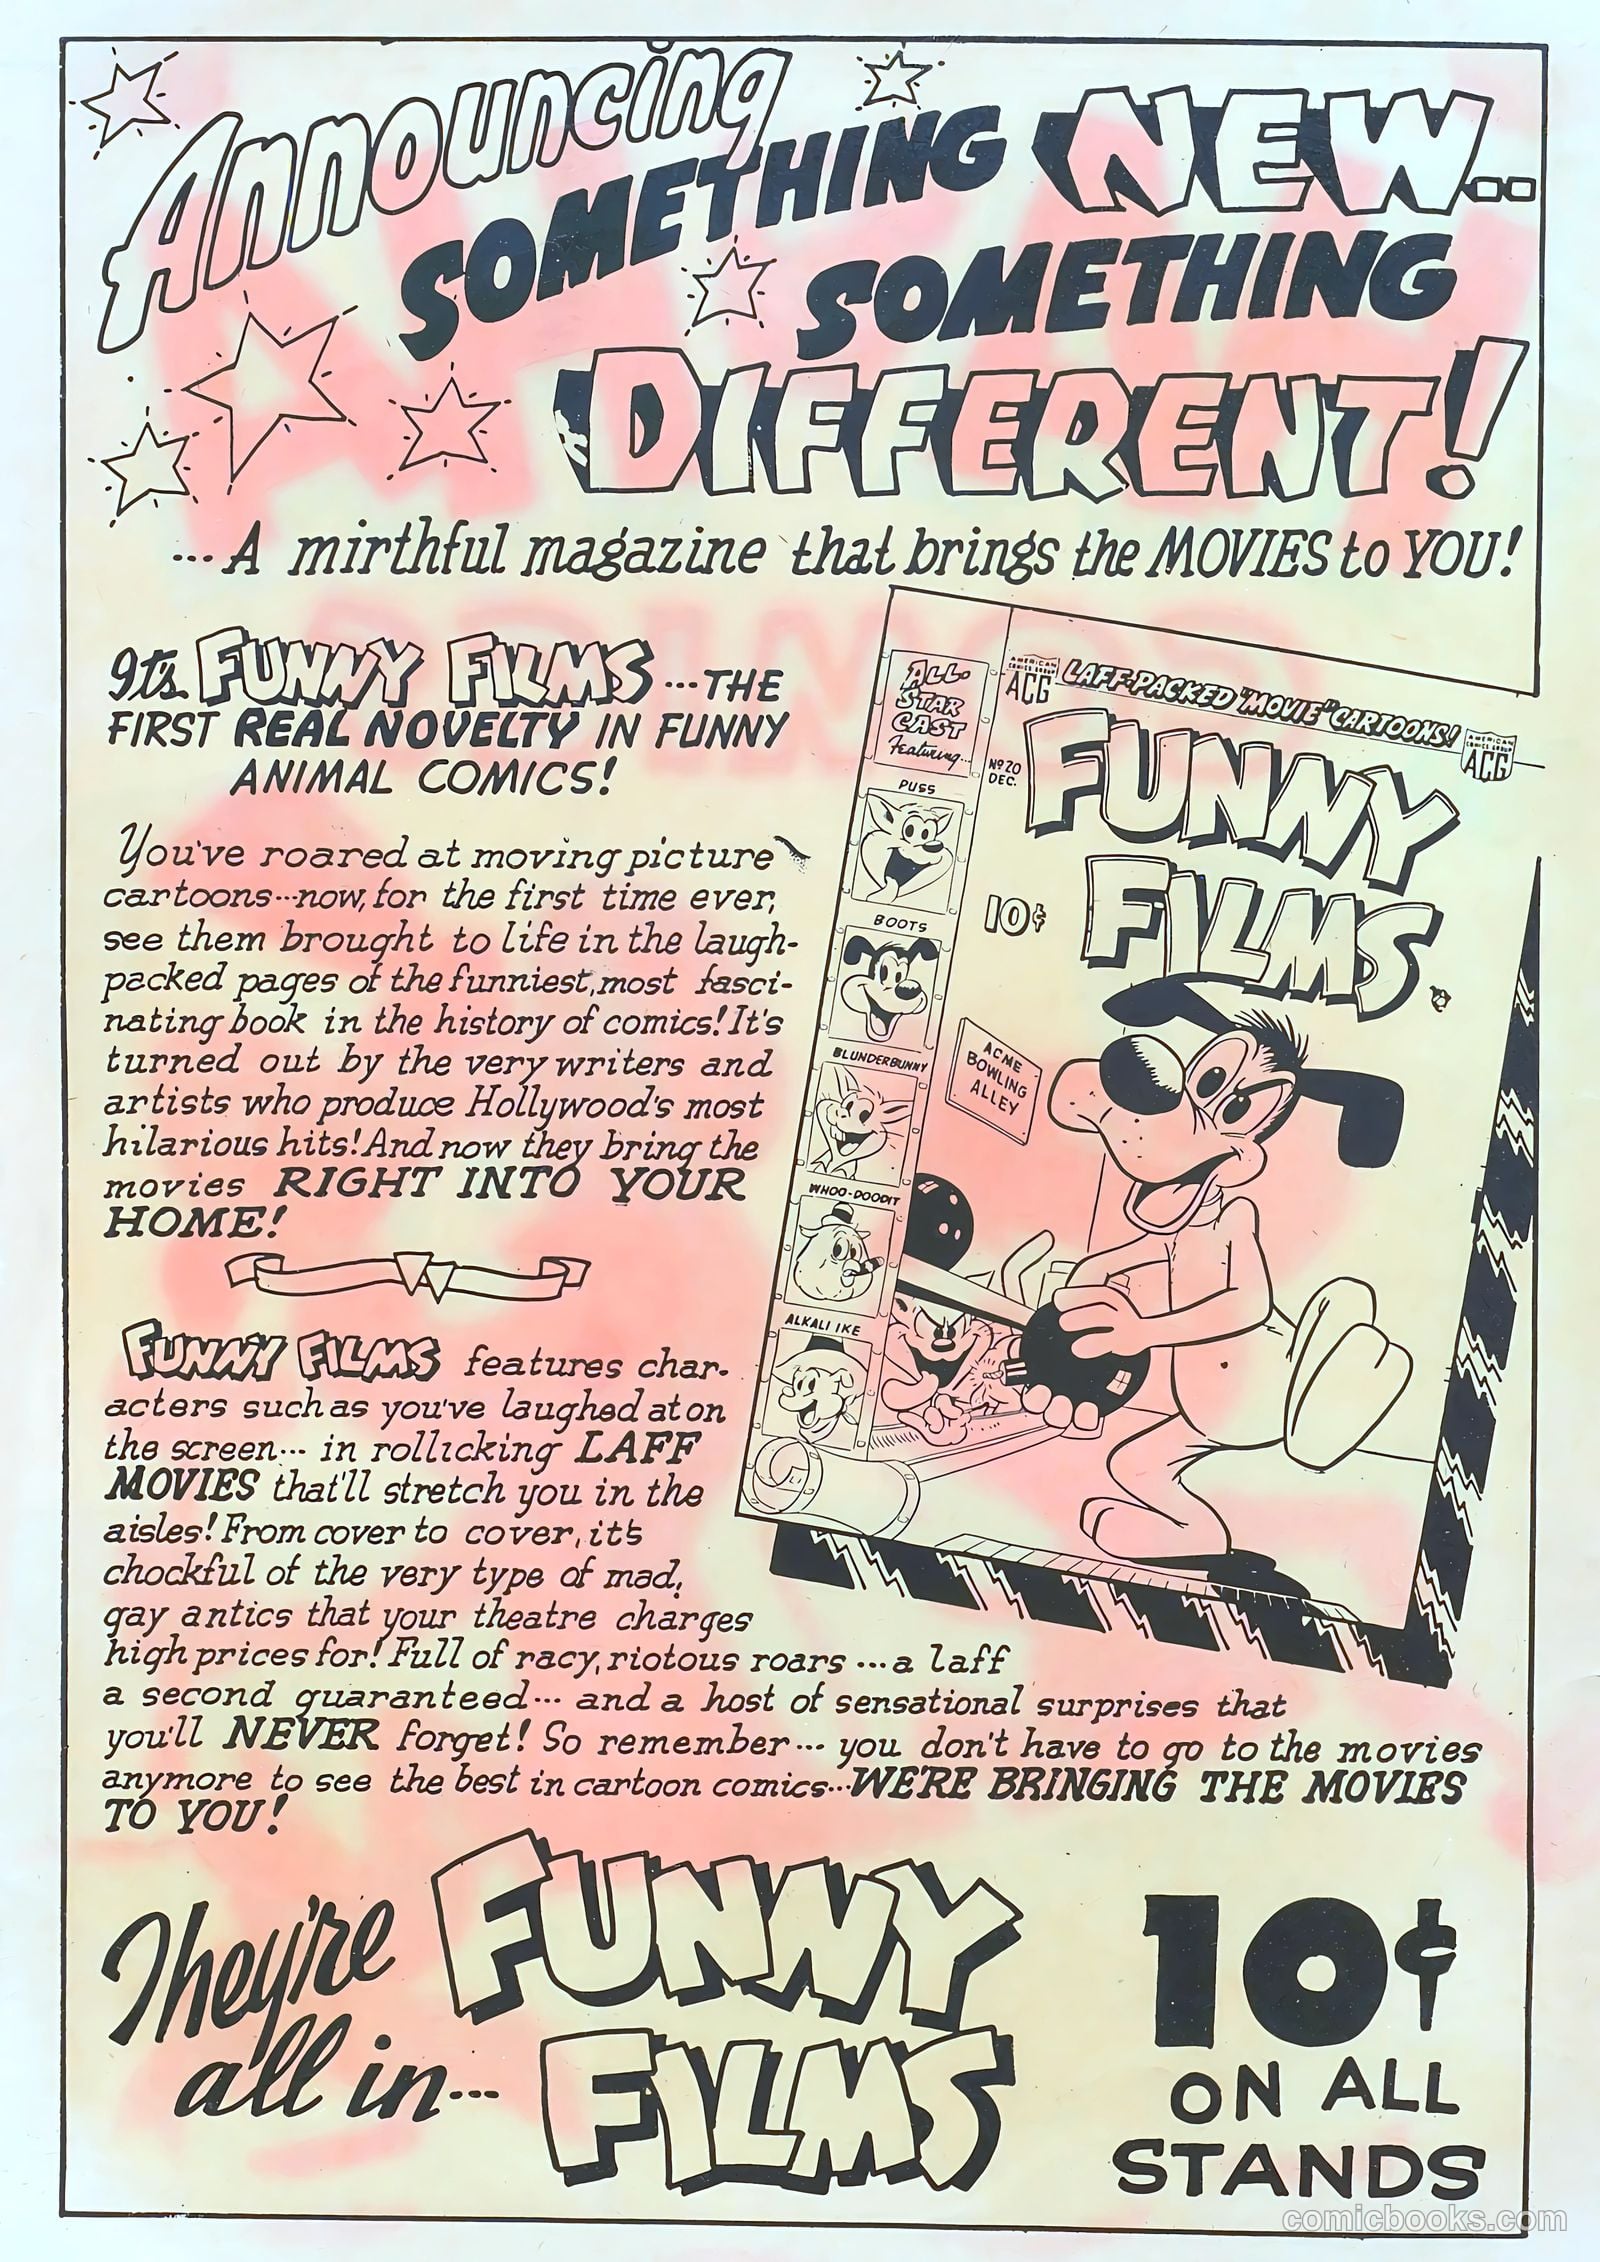 Announcing
SOMETHING NEW..
SOMETHING
DIFFERENT!
...A mirthful magazine that brings the MOVIES to YOU!
It's FUNNY FILMS ...THE
FIRST REAL NOVELTY IN FUNNY
ANIMAL COMICS!
You've roared at moving picture
cartoons...now, for the first time ever,
see them brought to life in the laugh-
packed pages of the funniest, most fasci-
nating book in the history of comics! It's
turned out by the very writers and
artists who produce Hollywood's most
hilarious hits! And now they bring the
movies RIGHT INTO YOUR
HOME!
FUNNY FILMS features char-
acters such as you've laughed at on
the screen... in rollicking LAFF
MOVIES that'll stretch you in the
aisles! From cover to cover, it's
chockful of the very type of mad,
gay antics that your theatre charges
high prices for! Full of racy, riotous roars ...a laff
a second guaranteed... and a host of sensational surprises that
you'll NEVER forget! So remember... you don't have to go to the movies
anymore to see the best in cartoon comics...WE'RE BRINGING THE MOVIES
TO YOU!
ALL-
STAR
CAST
Featuring...
PUSS
BOOTS
BLUNDERBUNNY
WHOO-DOODIT
ALKALI IKE
AMERICAN
COMICS GROUP
ACG
LAFF-PACKED "MOVIE" CARTOONS!
AMERICAN
COMICS GROUP
ACG
No 20
DEC.
FUNNY
FILMS
10¢
ACME
BOWLING
ALLEY
They're
all in...
FUNNY
FILMS
10¢
ON ALL
STANDS
comicbooks.com